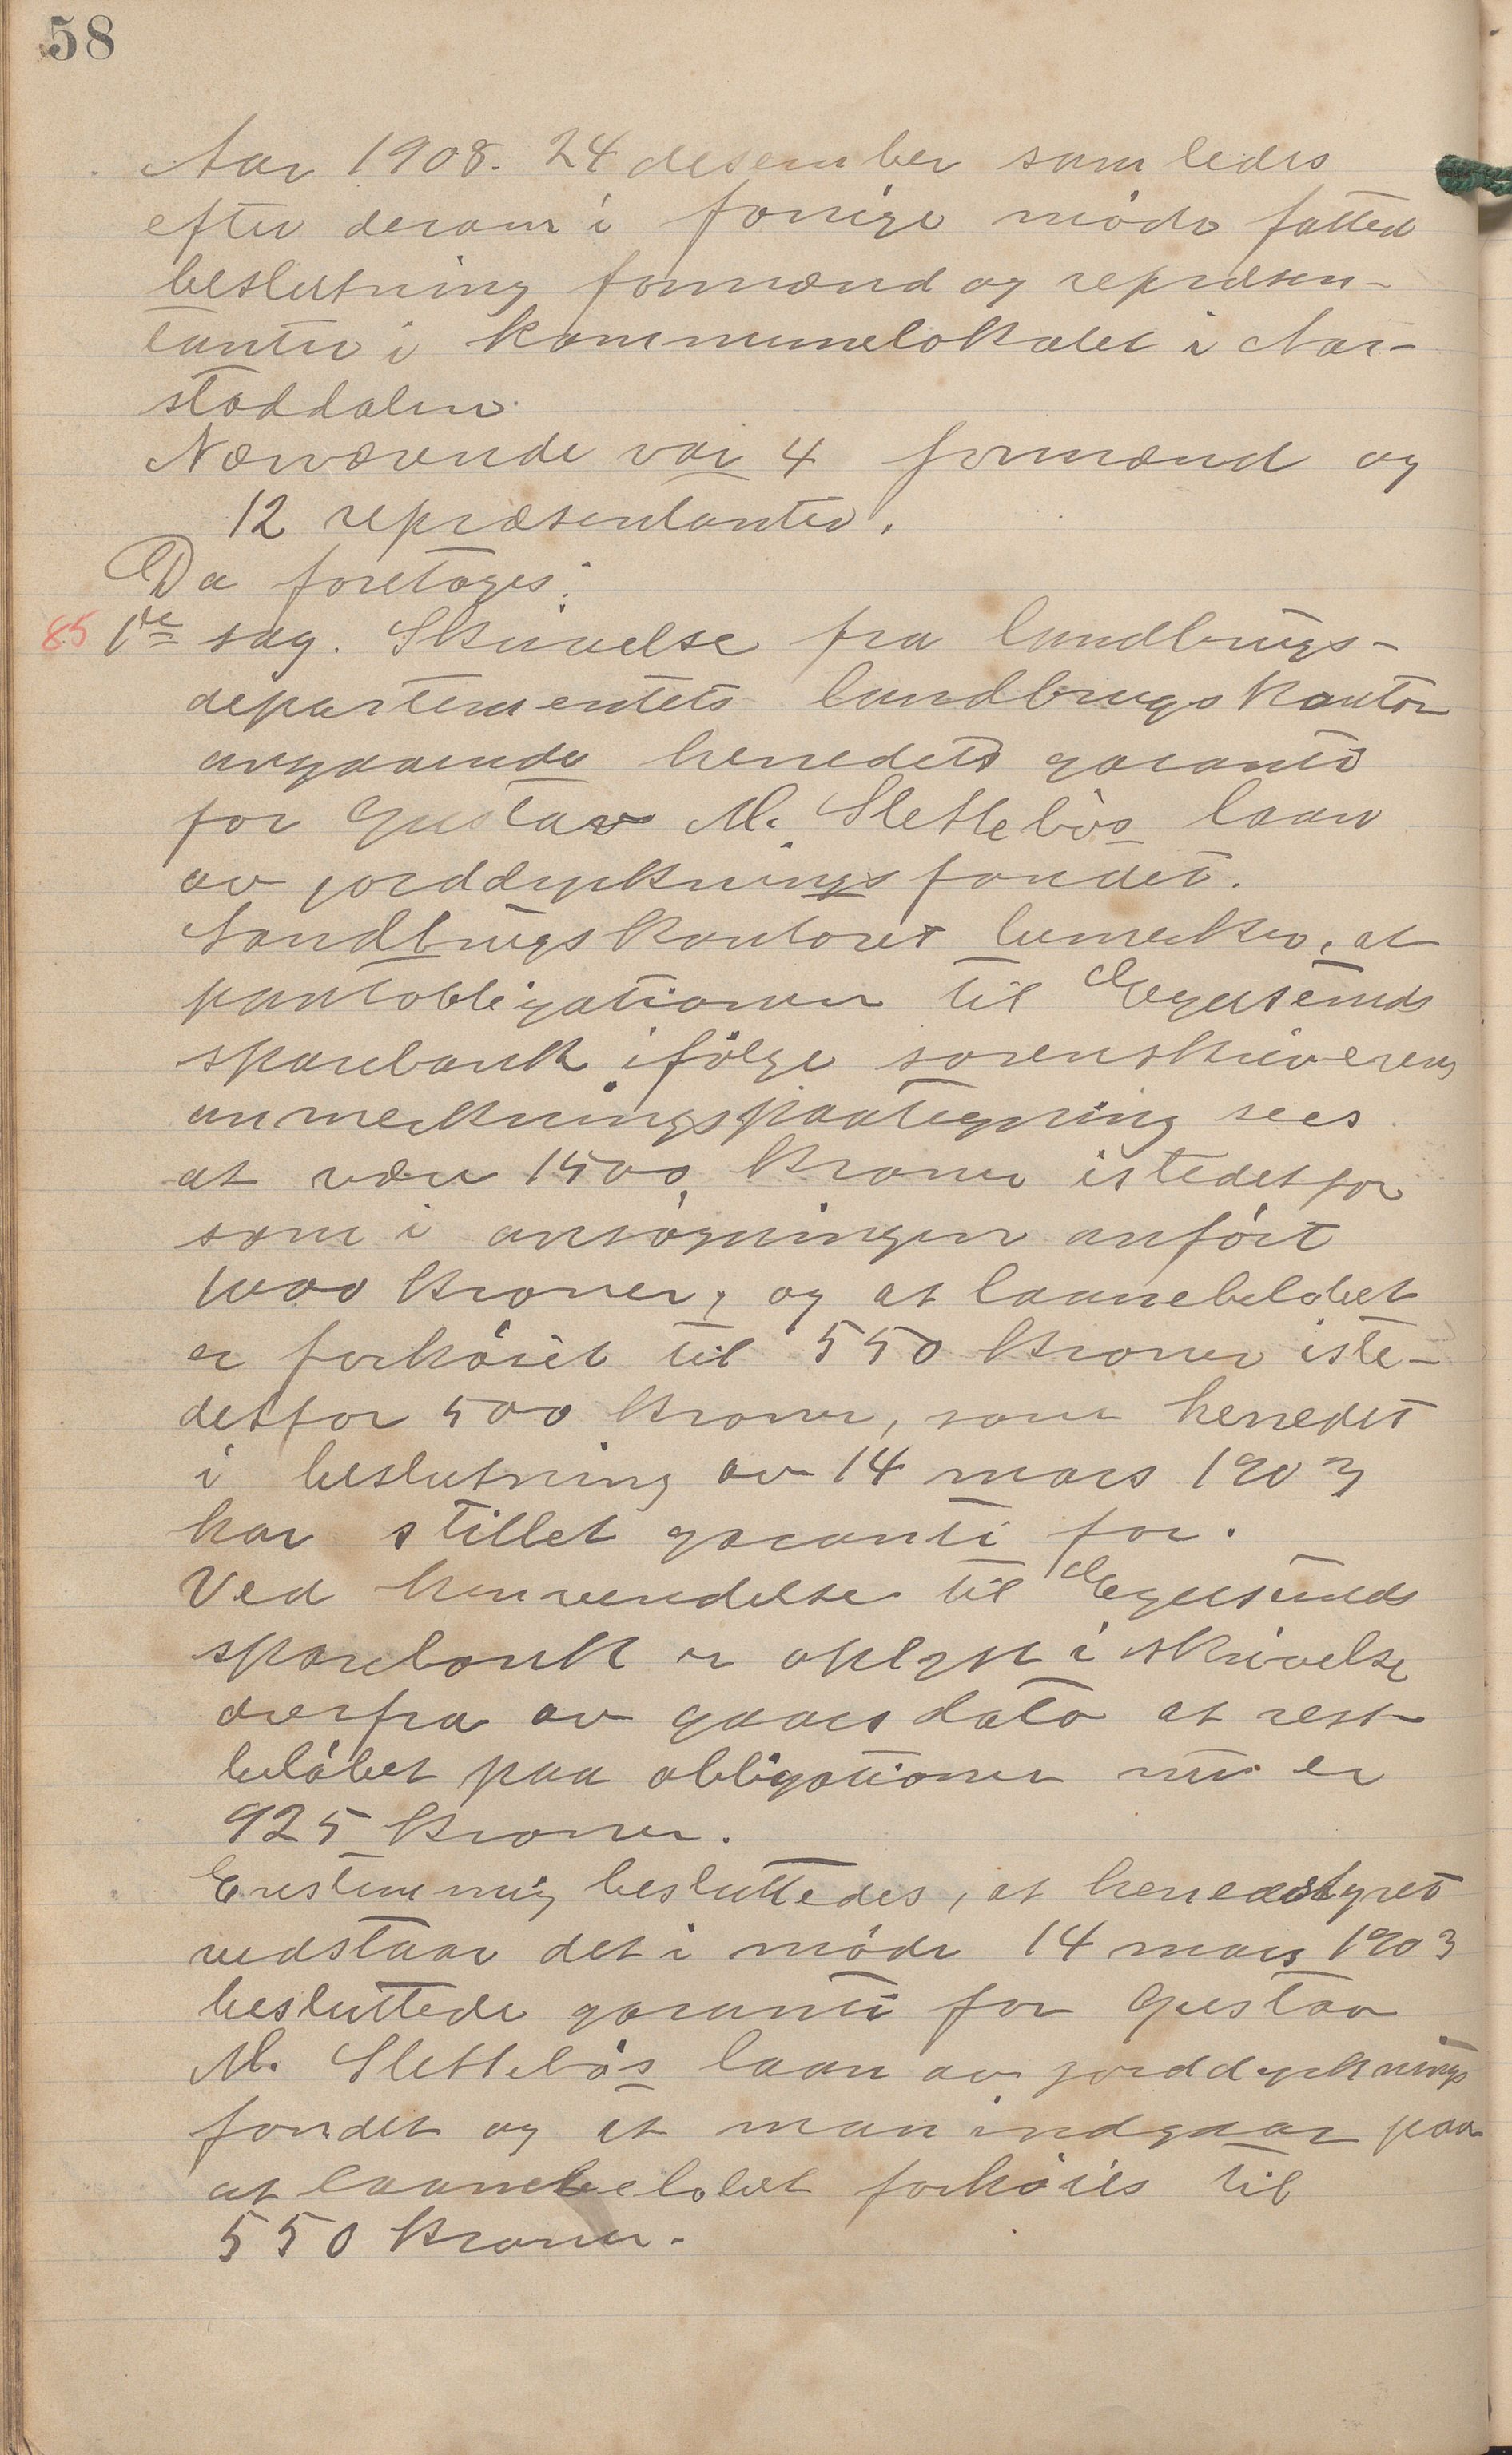 58
Aar 1908. 24 desember samledes
efter derom i forrige møde fatted
beslutning formænd og repræsen-
tanter i kommunelokalet i Aar-
staddalen.
Nærværende var 4 formænd og
12 repræsentanter.
Da foretoges:
85 1te sag. Skrivelse fra landbrugs-
departementets landbrugskontor
angaaende herredets garanti
for Gustav M. Slettebøs laan
av jorddyrkningsfondet.
Landbrugskontoret bemerker, at
pantobligationen til Egersunds
sparebank ifølge sorenskriverens
anmerkningspaategning sees
at være 1500 kroner istedetfor
som i ansøgningen anført
1000 kroner, og at laanebeløbet
er forhøiet til 550 kroner iste-
detfor 500 kroner, som herredet
i beslutning av 14 mars 1903
har stillet garanti for.
Ved henvendelse til Egersunds
sparebank er oplyst i skrivelse
derfra av gaars dato at rest
beløbet paa obligationen nu er
925 kroner.
Enstemmig besluttedes, at herredstyret
vedstaar det i møde 14 mars 1903
besluttede garanti for Gustav
M. Slettebøs laan av jorddyrknings
fondet og at man indgaar paa
at laanebeløbet forhøies til
550 kroner.